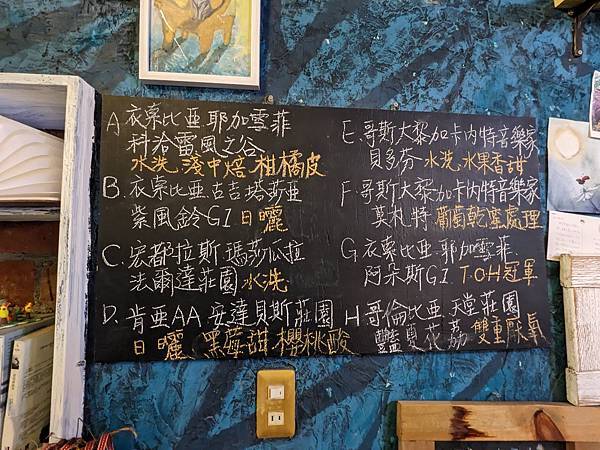 A. 衣索比亞.耶加雪菲
科洽雷風之谷
水洗.淺中焙.柑橘皮
B. 衣索比亞.古吉塔莎亞
紫風鈴G1 日曬
C. 宏都拉斯.瑪莎瓜拉
法爾達莊園 水洗
D. 肯亞AA.安達貝斯莊園
日曬 黑莓甜.櫻桃酸
E. 哥斯大黎加卡內特音樂家
貝多芬.水洗.水果香甜
F. 哥斯大黎加卡內特音樂家
莫札特.葡萄乾蜜處理
G. 衣索比亞.耶加雪菲
阿朵斯G1. T.O.H冠軍
H. 哥倫比亞.天堂莊園
豔夏花荔 雙重厭氧